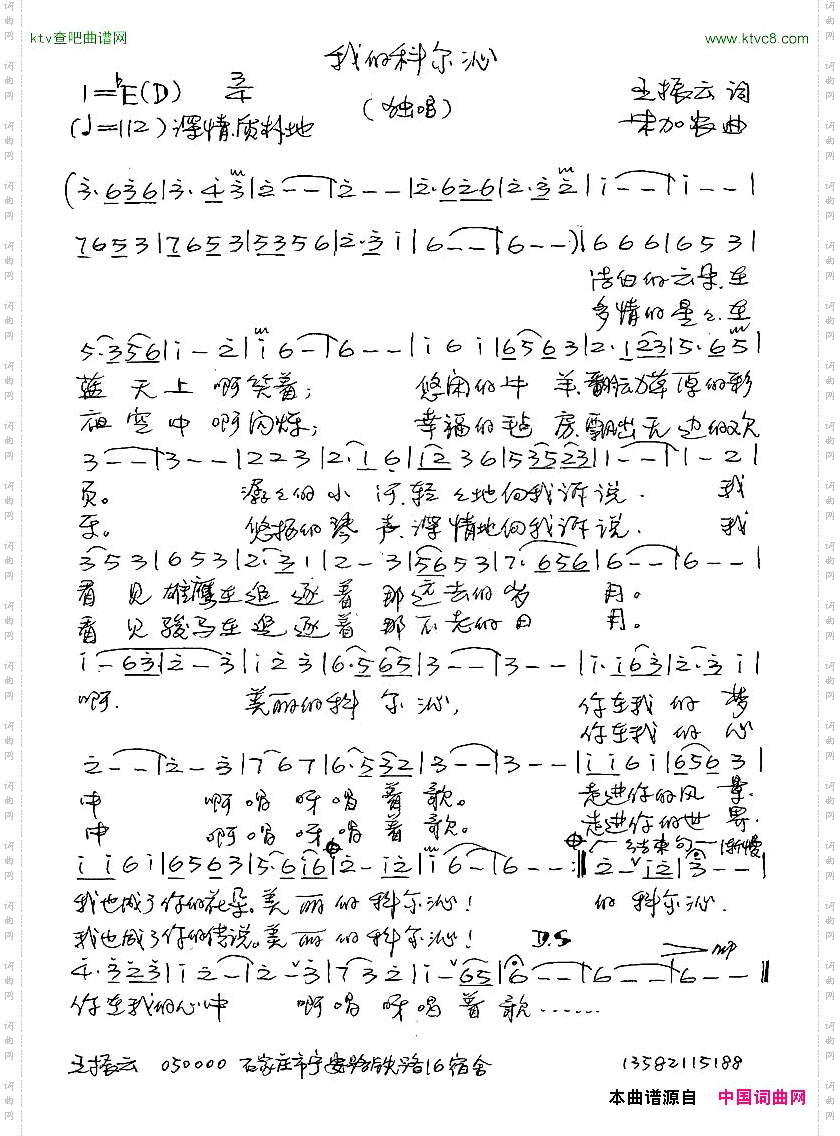 ktv查吧曲谱网
www.ktvc8.com
我的科尔沁
1=♭E(D) 3/4
(独唱)
王振云 词
(♩=112) 深情.质朴地
加农 曲
(3̇·6̇3̇6|3̇·4̇3̇|2̇--|2̇--|2̇·6̇2̇6|2̇·3̇2̇|1̇--|1̇--|
7653|7653|5356|2̇·3̇1̇|6--|6--)|666|653|
洁白的云朵.在
多情的星星.在
5·356|1̇-2̇|1̇6-|6--|1̇61̇|6563|2·123|5·65|
蓝天上啊笑着; 悠闲的牛羊.翻动草厚的彩
夜空中啊闪烁; 幸福的毡房.飘出无边的欢
3--|3--|223|2·16|1236|53523|1--|1-2|
页。 潺潺的小河.轻轻地向我诉说. 我
乐。 悠扬的琴声.深情地向我诉说. 我
353|653|2·31|2-3|5653|7·656|6--|6--|
看见雄鹰在追逐着那远去的岁月。
看见骏马在追逐着那不老的日月。
1̇-63|2̇-3̇|1̇2̇3̇|6·565|3--|3--|1̇·1̇63|2̇·3̇1̇|
啊. 美丽的科尔沁, 你在我的梦
你在我的心
2̇--|2̇-3̇|767|6·532|3--|3--|1̇1̇61̇|6563|
中 啊唱呀唱着歌。 走进你的风景.
中 啊唱呀唱着歌。 走进你的世界.
结束句 渐慢
1̇1̇61̇|6563|5·61̇6|2̇-1̇2̇|1̇6-|6--:‖2̇-1̇2̇|3̇--|
我也成了你的花朵。美丽的科尔沁! 的科尔沁.
我也成了你的传说。美丽的科尔沁! D.S
mp
4̇·3̇2̇3̇|1̇2̇-|2̇-3̇|73̇2̇|1̇-65|6--|6--|6--‖
你在我的心中 啊唱呀唱着歌……
王振云 050000 石家庄市宁安路铁路16宿舍 13582115188
本曲谱源自 中国词曲网